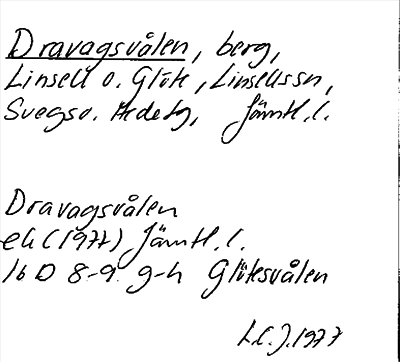 Dravagsvålen, berg,
Linsell o. Glöte, Linsellssn,
Svegs o. Hedebg, Jämtl. l.
Dravagsvålen
ek (1977) Jämtl. l.
16 D 8-9 g-h Glötesvålen
L.C.J. 1977